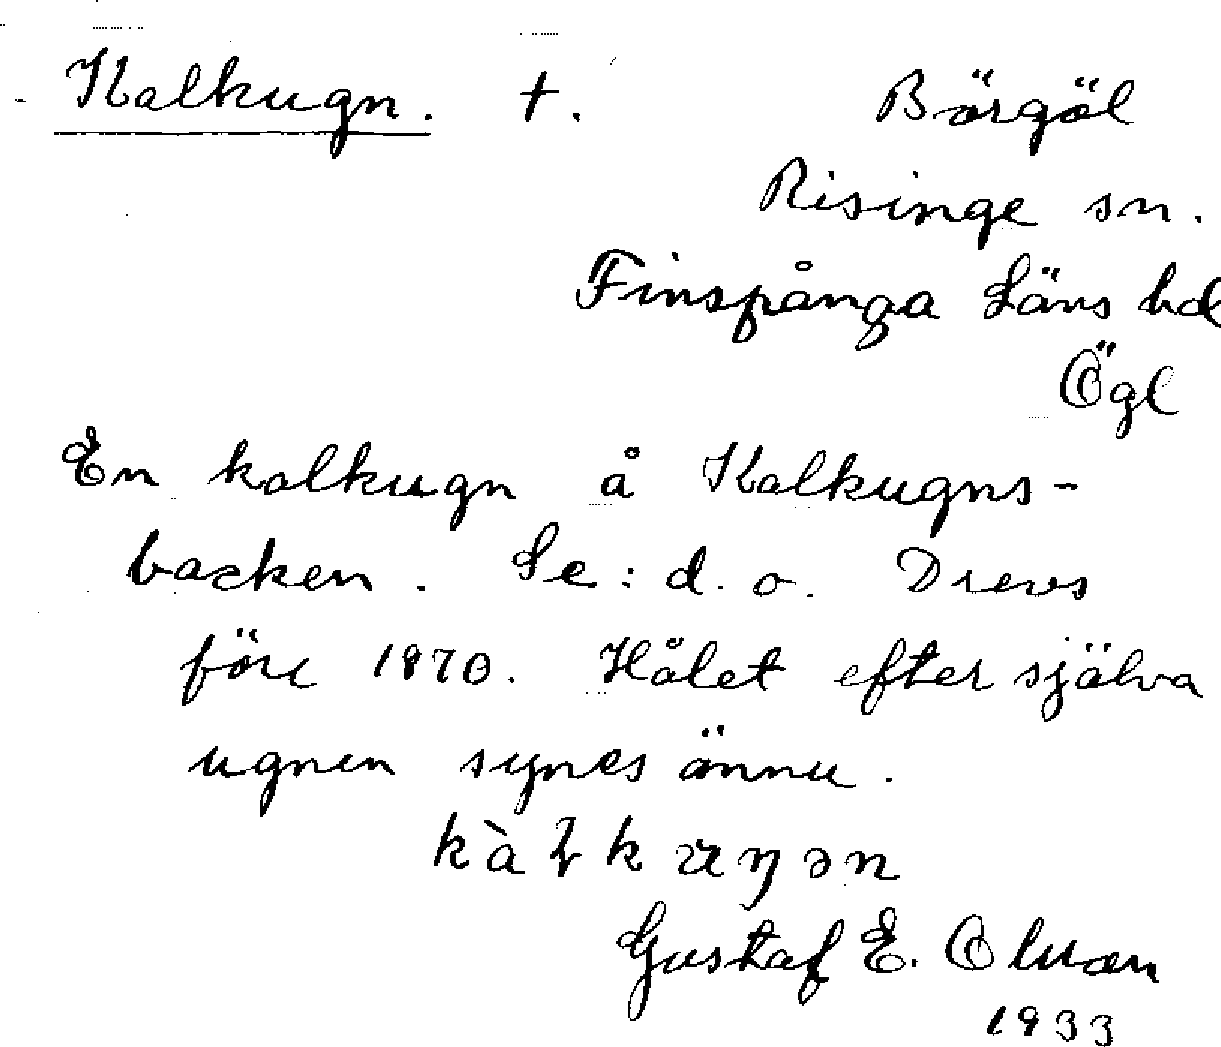 Kalkugn. †. Börgöl
Risinge sn.
Finspånga Läns hd
Ögl
En kalkugn å Kalkugns-
backen. Se: d. o. Drevs
före 1870. Hålet efter själva
ugnen synes ännu.
Gustaf E.
1933